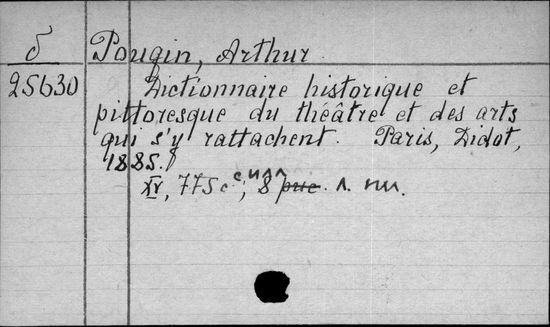 δ Pougin, Arthur
25630 Dictionnaire historique et
pittoresque du théâtre et des arts
qui s'y rattachent. Paris, Didot,
1885.
XV, 775 c. с илл; 8 рис. л. илл.